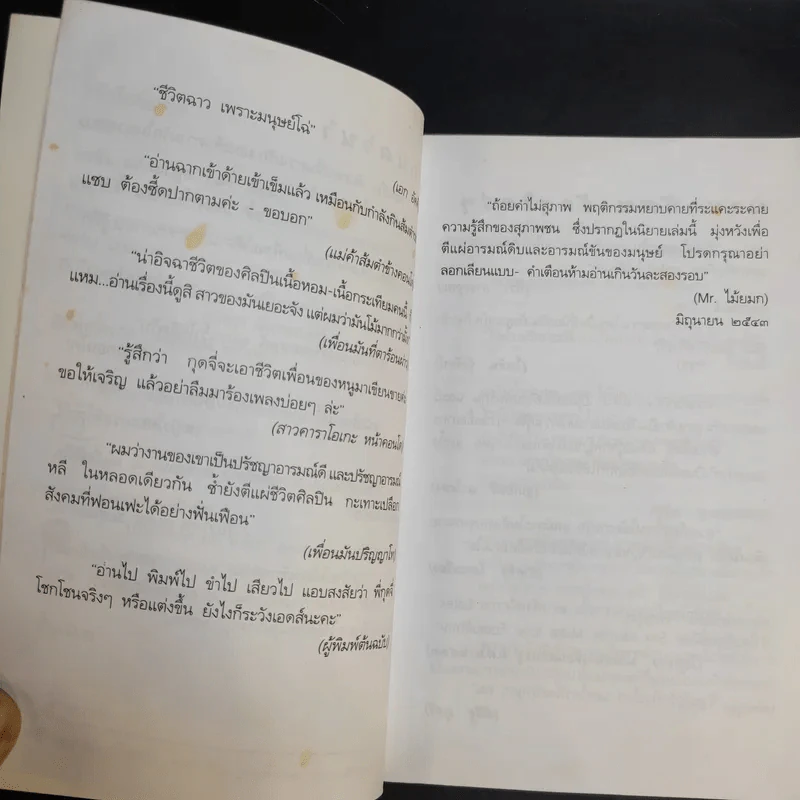 “ชีวิตฉาว เพราะมนุษย์โฉ่”
(เอก
“อ่านฉากเข้าด้ายเข้าเข็มแล้ว เหมือนกับกำลังกินส้มตำ
แซบ ต้องซี้ดปากตามค่ะ - ขอบอก”
(แม่ค้าส้มตำข้างคอนโด
“น่าอิจฉาชีวิตของศิลปินเนื้อหอม-เนื้อกระเทียมคนนี้
แหม...อ่านเรื่องนี้ดูสิ สาวของมันเยอะจัง แต่ผมว่ามันโม้มากกว่ามั้ง
(เพื่อนมันที่ตาร้อนผ่าว
“รู้สึกว่า กุดจี่จะเอาชีวิตเพื่อนของหนูมาเขียนขายค่ะ
ขอให้เจริญ แล้วอย่าลืมมาร้องเพลงบ่อยๆ ล่ะ”
(สาวคาราโอเกะ หน้าคอนโด
“ผมว่างานของเขาเป็นปรัชญาอารมณ์ดี และปรัชญาอารมณ์
หลี ในหลอดเดียวกัน ซ้ำยังตีแผ่ชีวิตศิลปิน กะเทาะเปลือก
สังคมที่ฟอนเฟะได้อย่างฟั่นเฟือน”
(เพื่อนมันปริญญาโท
“อ่านไป พิมพ์ไป ขำไป เสียวไป แอบสงสัยว่า พี่กุดจี่
โชกโชนจริงๆ หรือแต่งขึ้น ยังไงก็ระวังเอดส์นะคะ”
(ผู้พิมพ์ต้นฉบับ)
“ถ้อยคำไม่สุภาพ พฤติกรรมหยาบคายที่ระแคะระคาย
ความรู้สึกของสุภาพชน ซึ่งปรากฏในนิยายเล่มนี้ มุ่งหวังเพื่อ
ตีแผ่อารมณ์ดิบและอารมณ์ขันของมนุษย์ โปรดกรุณาอย่า
ลอกเลียนแบบ- คำเตือนห้ามอ่านเกินวันละสองรอบ”
(Mr. ไม้ยมก)
มิถุนายน ๒๕๔๓